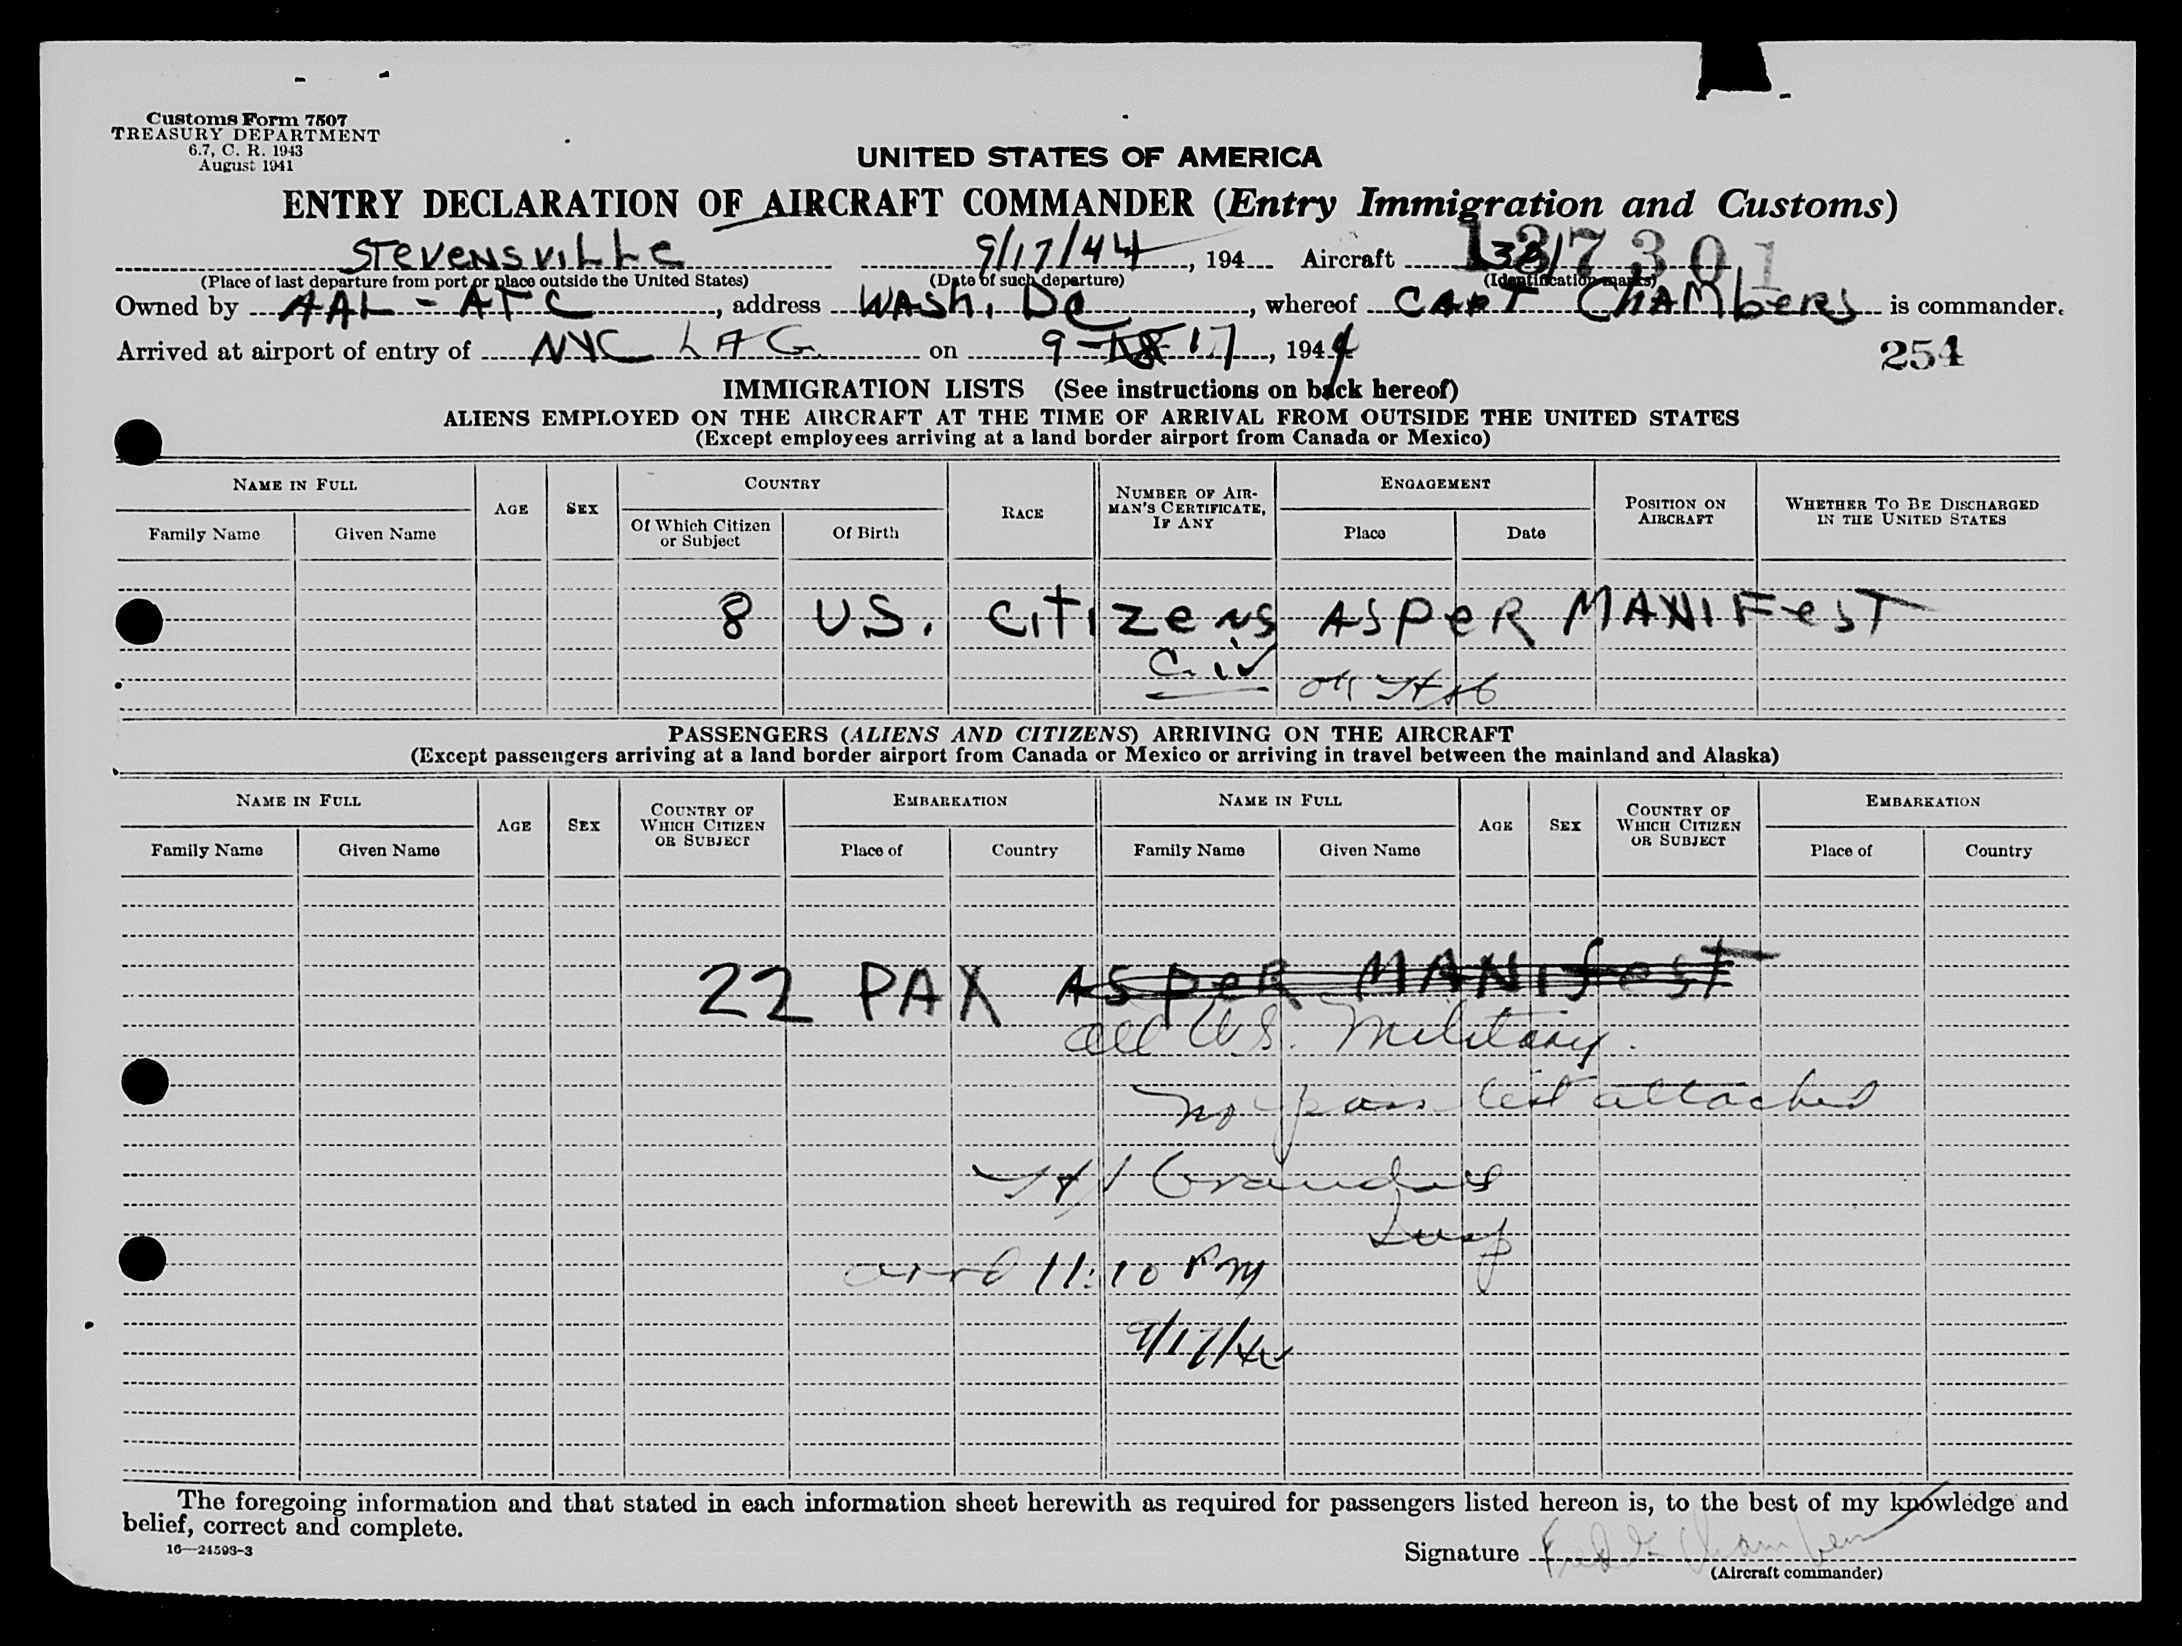 Customs Form 7507
TREASURY DEPARTMENT
6.7, C. R. 1943
August 1941
UNITED STATES OF AMERICA
ENTRY DECLARATION OF AIRCRAFT COMMANDER (Entry Immigration and Customs)
STEVENSVILLE 9/17/44, 194 Aircraft 137301
(Place of last departure from port or place outside the United States) (Date of such departure) (Identification marks)
Owned by AAL - ATC, address WASH, DC, whereof CAPT CHAMBERS is commander.
Arrived at airport of entry of NYC LAG. on 9- 17, 1944
254
IMMIGRATION LISTS (See instructions on back hereof)
ALIENS EMPLOYED ON THE AIRCRAFT AT THE TIME OF ARRIVAL FROM OUTSIDE THE UNITED STATES
(Except employees arriving at a land border airport from Canada or Mexico)
NAME IN FULL AGE SEX COUNTRY RACE NUMBER OF AIRMAN'S CERTIFICATE, IF ANY ENGAGEMENT POSITION ON AIRCRAFT WHETHER TO BE DISCHARGED IN THE UNITED STATES
Family Name Given Name Of Which Citizen or Subject Of Birth Place Date
8 U.S. CITIZENS AS PER MANIFEST
Civ OK
PASSENGERS (ALIENS AND CITIZENS) ARRIVING ON THE AIRCRAFT
(Except passengers arriving at a land border airport from Canada or Mexico or arriving in travel between the mainland and Alaska)
NAME IN FULL AGE SEX COUNTRY OF WHICH CITIZEN OR SUBJECT EMBARKATION NAME IN FULL AGE SEX COUNTRY OF WHICH CITIZEN OR SUBJECT EMBARKATION
Family Name Given Name Place of Country Family Name Given Name Place of Country
22 PAX AS PER MANIFEST
all U.S. Military.
no pass list attached
Insp
arrd 11:10 PM
9/17/44
The foregoing information and that stated in each information sheet herewith as required for passengers listed hereon is, to the best of my knowledge and
belief, correct and complete.
16—24593-3
Signature Chambers
(Aircraft commander)